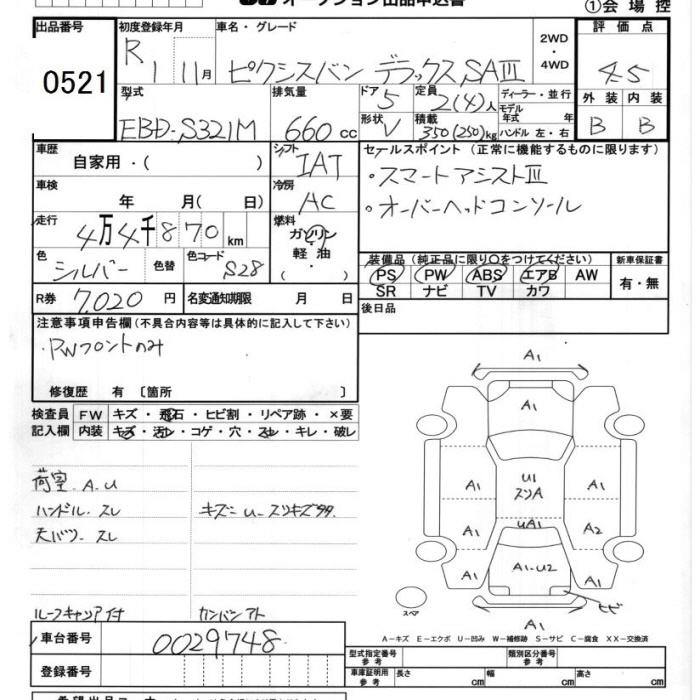 オークション出品申込書
①会場控
出品番号 初度登録年月 車名・グレード 2WD・4WD 評価点
0521 R 1 11月 ピクシスバン デラックスSAⅢ 4.5
型式 排気量 ドア 5 定員 2(4)人 ディーラー・並行 外装 内装
モデル年式 年
EBD-S321M 660cc 形状 V 積載 350(250)kg ハンドル 左・右 B B
車歴 自家用・( ) シフト IAT セールスポイント(正常に機能するものに限ります)
車検 年 月( 日) 冷房 AC ・スマートアシストⅢ
走行 4万4千870km 燃料 ガソリン・軽油・( ) ・オーバーヘッドコンソール
色 シルバー 色替 色コード S28 装備品(純正品に限り○をつけてください) 新車保証書
PS PW ABS エアB AW 有・無
SR ナビ TV カワ
R券 7,020円 名変通知期限 月 日 後日品
注意事項申告欄(不具合内容等は具体的に記入して下さい)
・PWフロントのみ
修復歴 有〔箇所 〕
検査員記入欄 FW キズ・飛石・ヒビ割・リペア跡・×要
内装 キズ・汚れ・コゲ・穴・スレ・キレ・破レ
荷室. A.U
ハンドル. スレ キズ、U-スリキズ多々.
天バリ-スレ
ルーフキャリア付 カンバンアト
A1
A1
U1
スリA
A1 A1
UA1
A1 A2
A1-U2
A1 A1
ヒビ
スペア
A1
A-キズ E-エクボ U-凹み W-補修跡 S-サビ C-腐食 XX-交換済
車台番号 0029748 型式指定番号 参考 類別区分番号 参考
登録番号 車庫証明用 参考 長さ cm 幅 cm 高さ cm